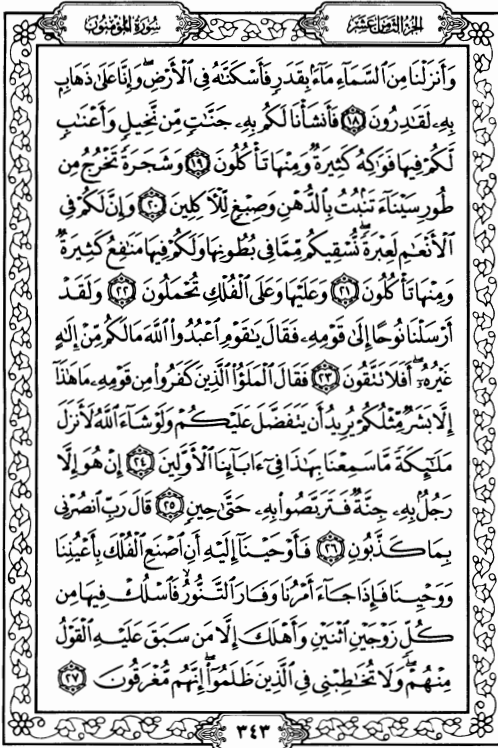 سُورَةُ المُؤْمِنُونَ
الجُزْءُ الثَّامِنَ عَشَرَ
وَأَنزَلْنَا مِنَ السَّمَآءِ مَآءًۢ بِقَدَرٍ فَأَسْكَنَّٰهُ فِى الْأَرْضِ ۖ وَإِنَّا عَلَىٰ ذَهَابٍۭ
بِهِۦ لَقَٰدِرُونَ ۝١٨ فَأَنشَأْنَا لَكُم بِهِۦ جَنَّٰتٍ مِّن نَّخِيلٍ وَأَعْنَٰبٍ
لَّكُمْ فِيهَا فَوَٰكِهُ كَثِيرَةٌ وَمِنْهَا تَأْكُلُونَ ۝١٩ وَشَجَرَةً تَخْرُجُ مِن
طُورِ سَيْنَآءَ تَنۢبُتُ بِالدُّهْنِ وَصِبْغٍ لِّلْآكِلِينَ ۝٢٠ وَإِنَّ لَكُمْ فِى
الْأَنْعَٰمِ لَعِبْرَةً ۖ نُّسْقِيكُم مِّمَّا فِى بُطُونِهَا وَلَكُمْ فِيهَا مَنَٰفِعُ كَثِيرَةٌ
وَمِنْهَا تَأْكُلُونَ ۝٢١ وَعَلَيْهَا وَعَلَى الْفُلْكِ تُحْمَلُونَ ۝٢٢ وَلَقَدْ
أَرْسَلْنَا نُوحًا إِلَىٰ قَوْمِهِۦ فَقَالَ يَٰقَوْمِ اعْبُدُوا۟ اللَّهَ مَا لَكُم مِّنْ إِلَٰهٍ
غَيْرُهُۥٓ ۖ أَفَلَا تَتَّقُونَ ۝٢٣ فَقَالَ الْمَلَؤُا۟ الَّذِينَ كَفَرُوا۟ مِن قَوْمِهِۦ مَا هَٰذَآ
إِلَّا بَشَرٌ مِّثْلُكُمْ يُرِيدُ أَن يَتَفَضَّلَ عَلَيْكُمْ وَلَوْ شَآءَ اللَّهُ لَأَنزَلَ
مَلَٰٓئِكَةً مَّا سَمِعْنَا بِهَٰذَا فِىٓ ءَابَآئِنَا الْأَوَّلِينَ ۝٢٤ إِنْ هُوَ إِلَّا
رَجُلٌۢ بِهِۦ جِنَّةٌ فَتَرَبَّصُوا۟ بِهِۦ حَتَّىٰ حِينٍ ۝٢٥ قَالَ رَبِّ انصُرْنِى
بِمَا كَذَّبُونِ ۝٢٦ فَأَوْحَيْنَآ إِلَيْهِ أَنِ اصْنَعِ الْفُلْكَ بِأَعْيُنِنَا
وَوَحْيِنَا فَإِذَا جَآءَ أَمْرُنَا وَفَارَ التَّنُّورُ ۙ فَاسْلُكْ فِيهَا مِن
كُلٍّ زَوْجَيْنِ اثْنَيْنِ وَأَهْلَكَ إِلَّا مَن سَبَقَ عَلَيْهِ الْقَوْلُ
مِنْهُمْ ۖ وَلَا تُخَٰطِبْنِى فِى الَّذِينَ ظَلَمُوٓا۟ ۖ إِنَّهُم مُّغْرَقُونَ ۝٢٧
٣٤٣